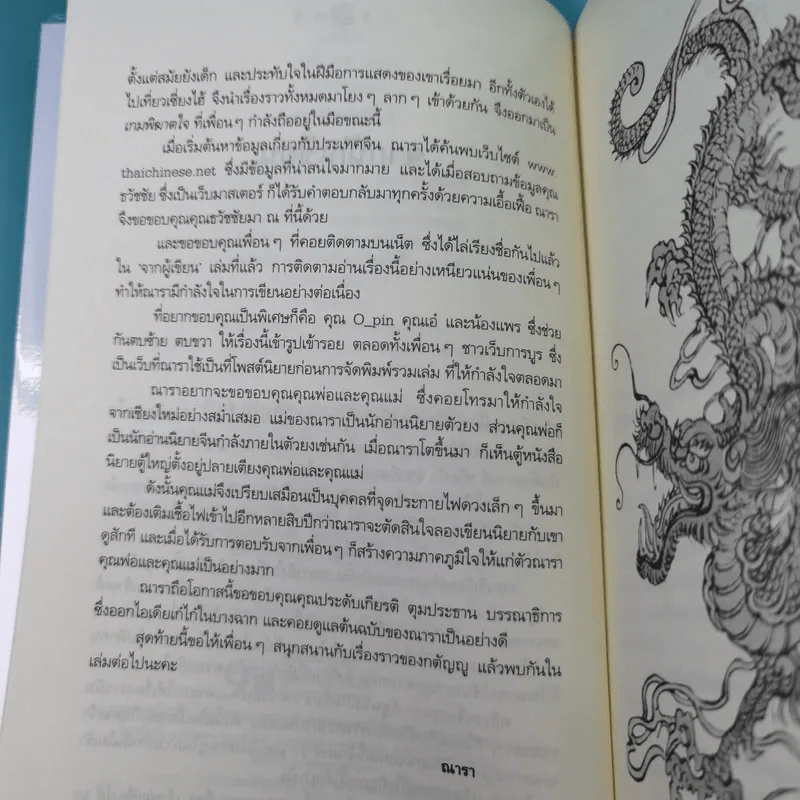 ตั้งแต่สมัยยังเด็ก และประทับใจในฝีมือการแสดงของเขาเรื่อยมา อีกทั้งตัวเองได้
ไปเที่ยวเซี่ยงไฮ้ จึงนำเรื่องราวทั้งหมดมาโยงๆ ลากๆ เข้าด้วยกัน จึงออกมาเป็น
เกมพิฆาตใจ ที่เพื่อนๆ กำลังถืออยู่ในมือขณะนี้
เมื่อเริ่มต้นหาข้อมูลเกี่ยวกับประเทศจีน ณาราได้ค้นพบเว็บไซต์ www.
thaichinese.net ซึ่งมีข้อมูลที่น่าสนใจมากมาย และได้เมื่อสอบถามข้อมูลคุณ
ธวัชชัย ซึ่งเป็นเว็บมาสเตอร์ ก็ได้รับคำตอบกลับมาทุกครั้งด้วยความเอื้อเฟื้อ ณารา
จึงขอขอบคุณคุณธวัชชัยมา ณ ที่นี้ด้วย
และขอขอบคุณเพื่อนๆ ที่คอยติดตามบนเน็ต ซึ่งได้ไล่เรียงชื่อกันไปแล้ว
ใน 'จากผู้เขียน' เล่มที่แล้ว การติดตามอ่านเรื่องนี้อย่างเหนียวแน่นของเพื่อนๆ
ทำให้ณารามีกำลังใจในการเขียนอย่างต่อเนื่อง
ที่อยากขอบคุณเป็นพิเศษก็คือ คุณ O_pin คุณเอ๋ และน้องแพร ซึ่งช่วย
กันตบซ้าย ตบขวา ให้เรื่องนี้เข้ารูปเข้ารอย ตลอดทั้งเพื่อนๆ ชาวเว็บการบูร ซึ่ง
เป็นเว็บที่ณาราใช้เป็นที่โพสต์นิยายก่อนการจัดพิมพ์รวมเล่ม ที่ให้กำลังใจตลอดมา
ณาราอยากจะขอขอบคุณคุณพ่อและคุณแม่ ซึ่งคอยโทรมาให้กำลังใจ
จากเชียงใหม่อย่างสม่ำเสมอ แม่ของณาราเป็นนักอ่านนิยายตัวยง ส่วนคุณพ่อก็
เป็นนักอ่านนิยายจีนกำลังภายในตัวยงเช่นกัน เมื่อณาราโตขึ้นมา ก็เห็นตู้หนังสือ
นิยายตู้ใหญ่ตั้งอยู่ปลายเตียงคุณพ่อและคุณแม่
ดังนั้นคุณแม่จึงเปรียบเสมือนเป็นบุคคลที่จุดประกายไฟดวงเล็กๆ ขึ้นมา
และต้องเติมเชื้อไฟเข้าไปอีกหลายสิบปีกว่าณาราจะตัดสินใจลองเขียนนิยายกับเขา
ดูสักที และเมื่อได้รับการตอบรับจากเพื่อนๆ ก็สร้างความภาคภูมิใจให้แก่ตัวณารา
คุณพ่อและคุณแม่เป็นอย่างมาก
ณาราถือโอกาสนี้ขอขอบคุณคุณประดับเกียรติ ตุมประธาน บรรณาธิการ
ซึ่งออกไอเดียเก๋ไก๋ในบางฉาก และคอยดูแลต้นฉบับของณาราเป็นอย่างดี
สุดท้ายนี้ขอให้เพื่อนๆ สนุกสนานกับเรื่องราวของกตัญญู แล้วพบกันใน
เล่มต่อไปนะคะ
ณารา